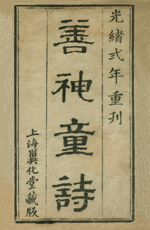 光緒弍年重刊
善神童詩
上海翼化堂藏版